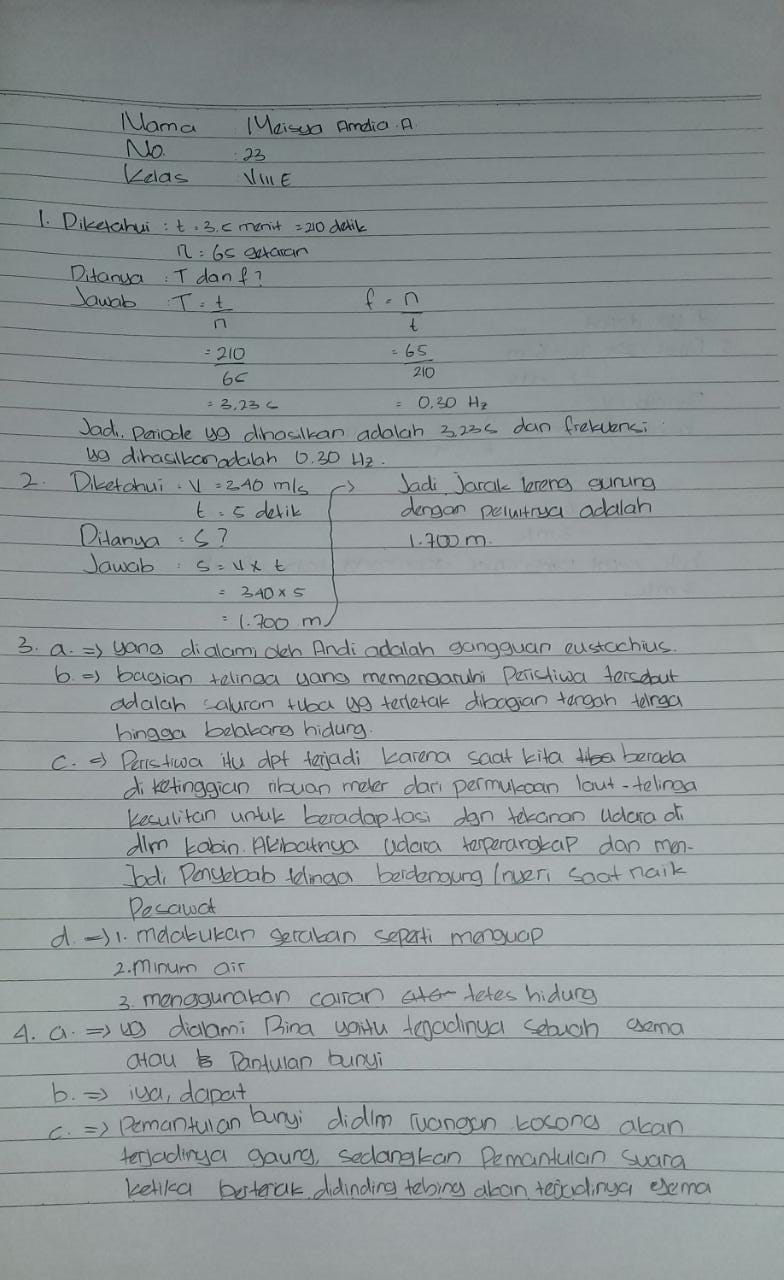 Nama Meisya Amdia.A
No. : 23
Kelas VIII E
1. Diketahui : t = 3,5 menit = 210 detik
n = 65 getaran
Ditanya : T dan f ?
Jawab : T = t/n f = n/t
= 210/65 = 65/210
= 3,23 s = 0,30 Hz
Jadi, periode yg dihasilkan adalah 3,23 s dan frekuensi
yg dihasilkan adalah 0,30 Hz.
2. Diketahui : V = 340 m/s → Jadi, jarak lereng gunung
t = 5 detik dengan peluitnya adalah
Ditanya = S ? 1.700 m.
Jawab : S = V x t
= 340 x 5
= 1.700 m
3. a. => yang dialami oleh Andi adalah gangguan eustachius.
b. => bagian telinga yang memengaruhi Peristiwa tersebut
adalah saluran tuba yg terletak dibagian tengah telinga
hingga belakang hidung.
c. => Peristiwa itu dpt terjadi karena saat kita berada
di ketinggian ribuan meter dari permukaan laut - telinga
kesulitan untuk beradaptasi dgn tekanan udara di
dlm kabin. Akibatnya udara terperangkap dan men-
jadi Penyebab telinga berdengung / nyeri saat naik
Pesawat
d. => 1. melakukan gerakan seperti menguap
2. minum air
3. menggunakan cairan tetes hidung
4. a. => yg dialami Bina yaitu terjadinya sebuah gema
atau Pantulan bunyi
b. => iya, dapat
c. => Pemantulan bunyi didlm ruangan kosong akan
terjadinya gaung, sedangkan Pemantulan suara
ketika berteriak didinding tebing akan terjadinya gema